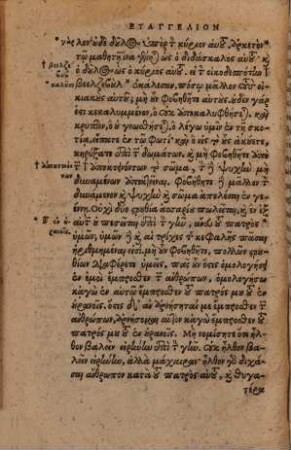 ΕΥΑΓΓΕΛΙΟΝ
τῷ μαθητῇ ἵνα ὡς ὁ διδάσκαλος αὐτοῦ, καὶ
ὁ δοῦλος ὡς ὁ κύριος αὐτοῦ. εἰ τὸν οἰκοδεσπότην
βεελζεβοὺλ ἐκάλεσαν, πόσῳ μᾶλλον τοὺς οἰ-
κιακοὺς αὐτοῦ; μὴ οὖν φοβηθῆτε αὐτούς. οὐδὲν γάρ
ἐστι κεκαλυμμένον, ὃ οὐκ ἀποκαλυφθήσεται, καὶ
κρυπτὸν, ὃ οὐ γνωσθήσεται. ὃ λέγω ὑμῖν ἐν τῇ σκο-
τίᾳ, εἴπατε ἐν τῷ φωτί· καὶ ὃ εἰς τὸ οὖς ἀκούετε,
κηρύξατε ἐπὶ τῶν δωμάτων. καὶ μὴ φοβηθῆτε ἀπὸ
τῶν ἀποκτεινόντων τὸ σῶμα, τὴν δὲ ψυχὴν μὴ
δυναμένων ἀποκτεῖναι. φοβήθητε δὲ μᾶλλον τὸν
δυνάμενον καὶ ψυχὴν καὶ σῶμα ἀπολέσαι ἐν γε-
έννῃ. Οὐχὶ δύο στρουθία ἀσσαρίου πωλεῖται; καὶ ἓν ἐξ
αὐτῶν οὐ πεσεῖται ἐπὶ τὴν γῆν, ἄνευ τοῦ πατρὸς
ὑμῶν. ὑμῶν δὲ καὶ αἱ τρίχες τῆς κεφαλῆς πᾶσαι
ἠριθμημέναι εἰσί. μὴ οὖν φοβηθῆτε, πολλῶν στρου-
θίων διαφέρετε ὑμεῖς. πᾶς οὖν ὅστις ὁμολογήσει
ἐν ἐμοὶ ἔμπροσθεν τῶν ἀνθρώπων, ὁμολογήσω
κἀγὼ ἐν αὐτῷ ἔμπροσθεν τοῦ πατρός μου τοῦ ἐν
οὐρανοῖς. ὅστις δ' ἂν ἀρνήσηταί με ἔμπροσθεν τῶν ἀν-
θρώπων, ἀρνήσομαι αὐτὸν κἀγὼ ἔμπροσθεν τοῦ
πατρός μου τοῦ ἐν οὐρανοῖς. Μὴ νομίσητε ὅτι ἦλ-
θον βαλεῖν εἰρήνην ἐπὶ τὴν γῆν. Οὐκ ἦλθον βα-
λεῖν εἰρήνην, ἀλλὰ μάχαιραν· ἦλθον γὰρ διχά-
σαι ἄνθρωπον κατὰ τοῦ πατρὸς αὐτοῦ, καὶ θυγα-
τέρα